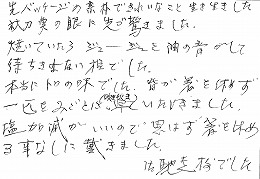 生パッケージの素朴できれいなこと生き生きました
秋刀魚の眼に先ず驚きました。
焼いていたらジュージューと油の音がして
待ちきれない程でした。
本当にトロの味でした。皆が箸を休めず
一匹をみごとにいただきました。
塩加減がいいので思はず箸を休め
る事なしに戴きました。
御馳走様でした